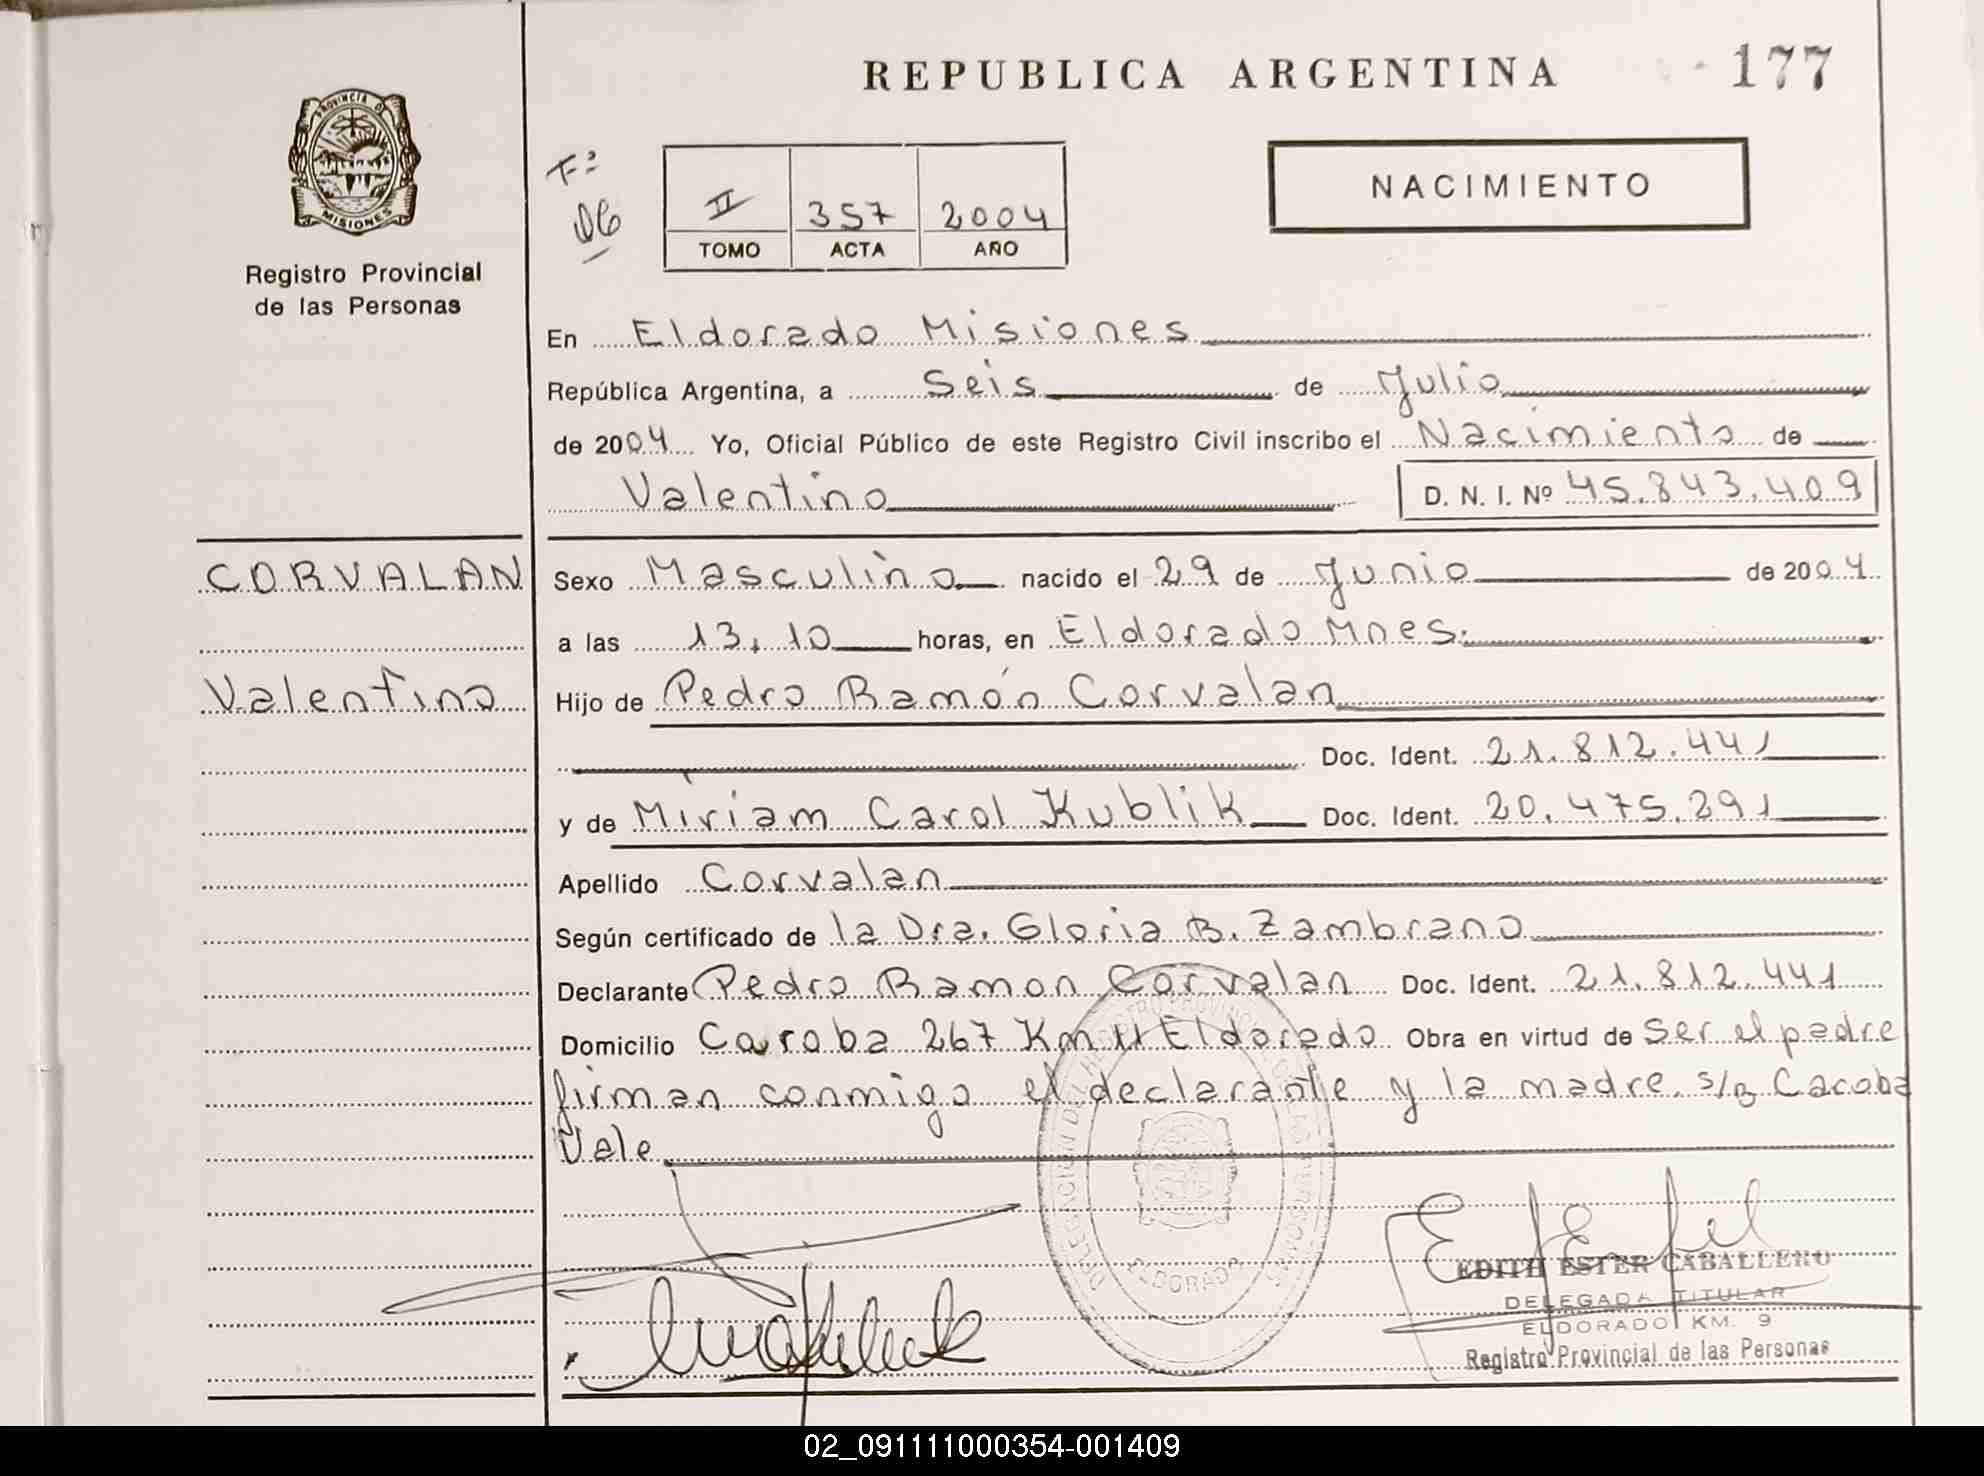 REPUBLICA ARGENTINA
177
PROVINCIA DE
MISIONES
Registro Provincial
de las Personas
II 357 2004
TOMO ACTA AÑO
NACIMIENTO
En Eldorado Misiones
República Argentina, a Seis de Julio
de 2004 Yo, Oficial Público de este Registro Civil inscribo el Nacimiento de
Valentino D. N. I. Nº 45.843.409
CORVALAN
Valentino
Sexo Masculino nacido el 29 de Junio de 2004
a las 13,10 horas, en Eldorado Mnes.
Hijo de Pedro Ramón Corvalan
Doc. Ident. 21.812.441
y de Miriam Carol Kublik Doc. Ident. 20.475.291
Apellido Corvalan
Según certificado de la Dra. Gloria B. Zambrano
Declarante Pedro Ramon Corvalan Doc. Ident. 21.812.441
Domicilio Caroba 267 Km 11 Eldorado Obra en virtud de Ser el padre
firman conmigo el declarante y la madre. s/B Caroba
Vale
ELDORADO
EDITH ESTER CABALLERO
DELEGADA TITULAR
ELDORADO KM. 9
Registro Provincial de las Personas
02_091111000354-001409